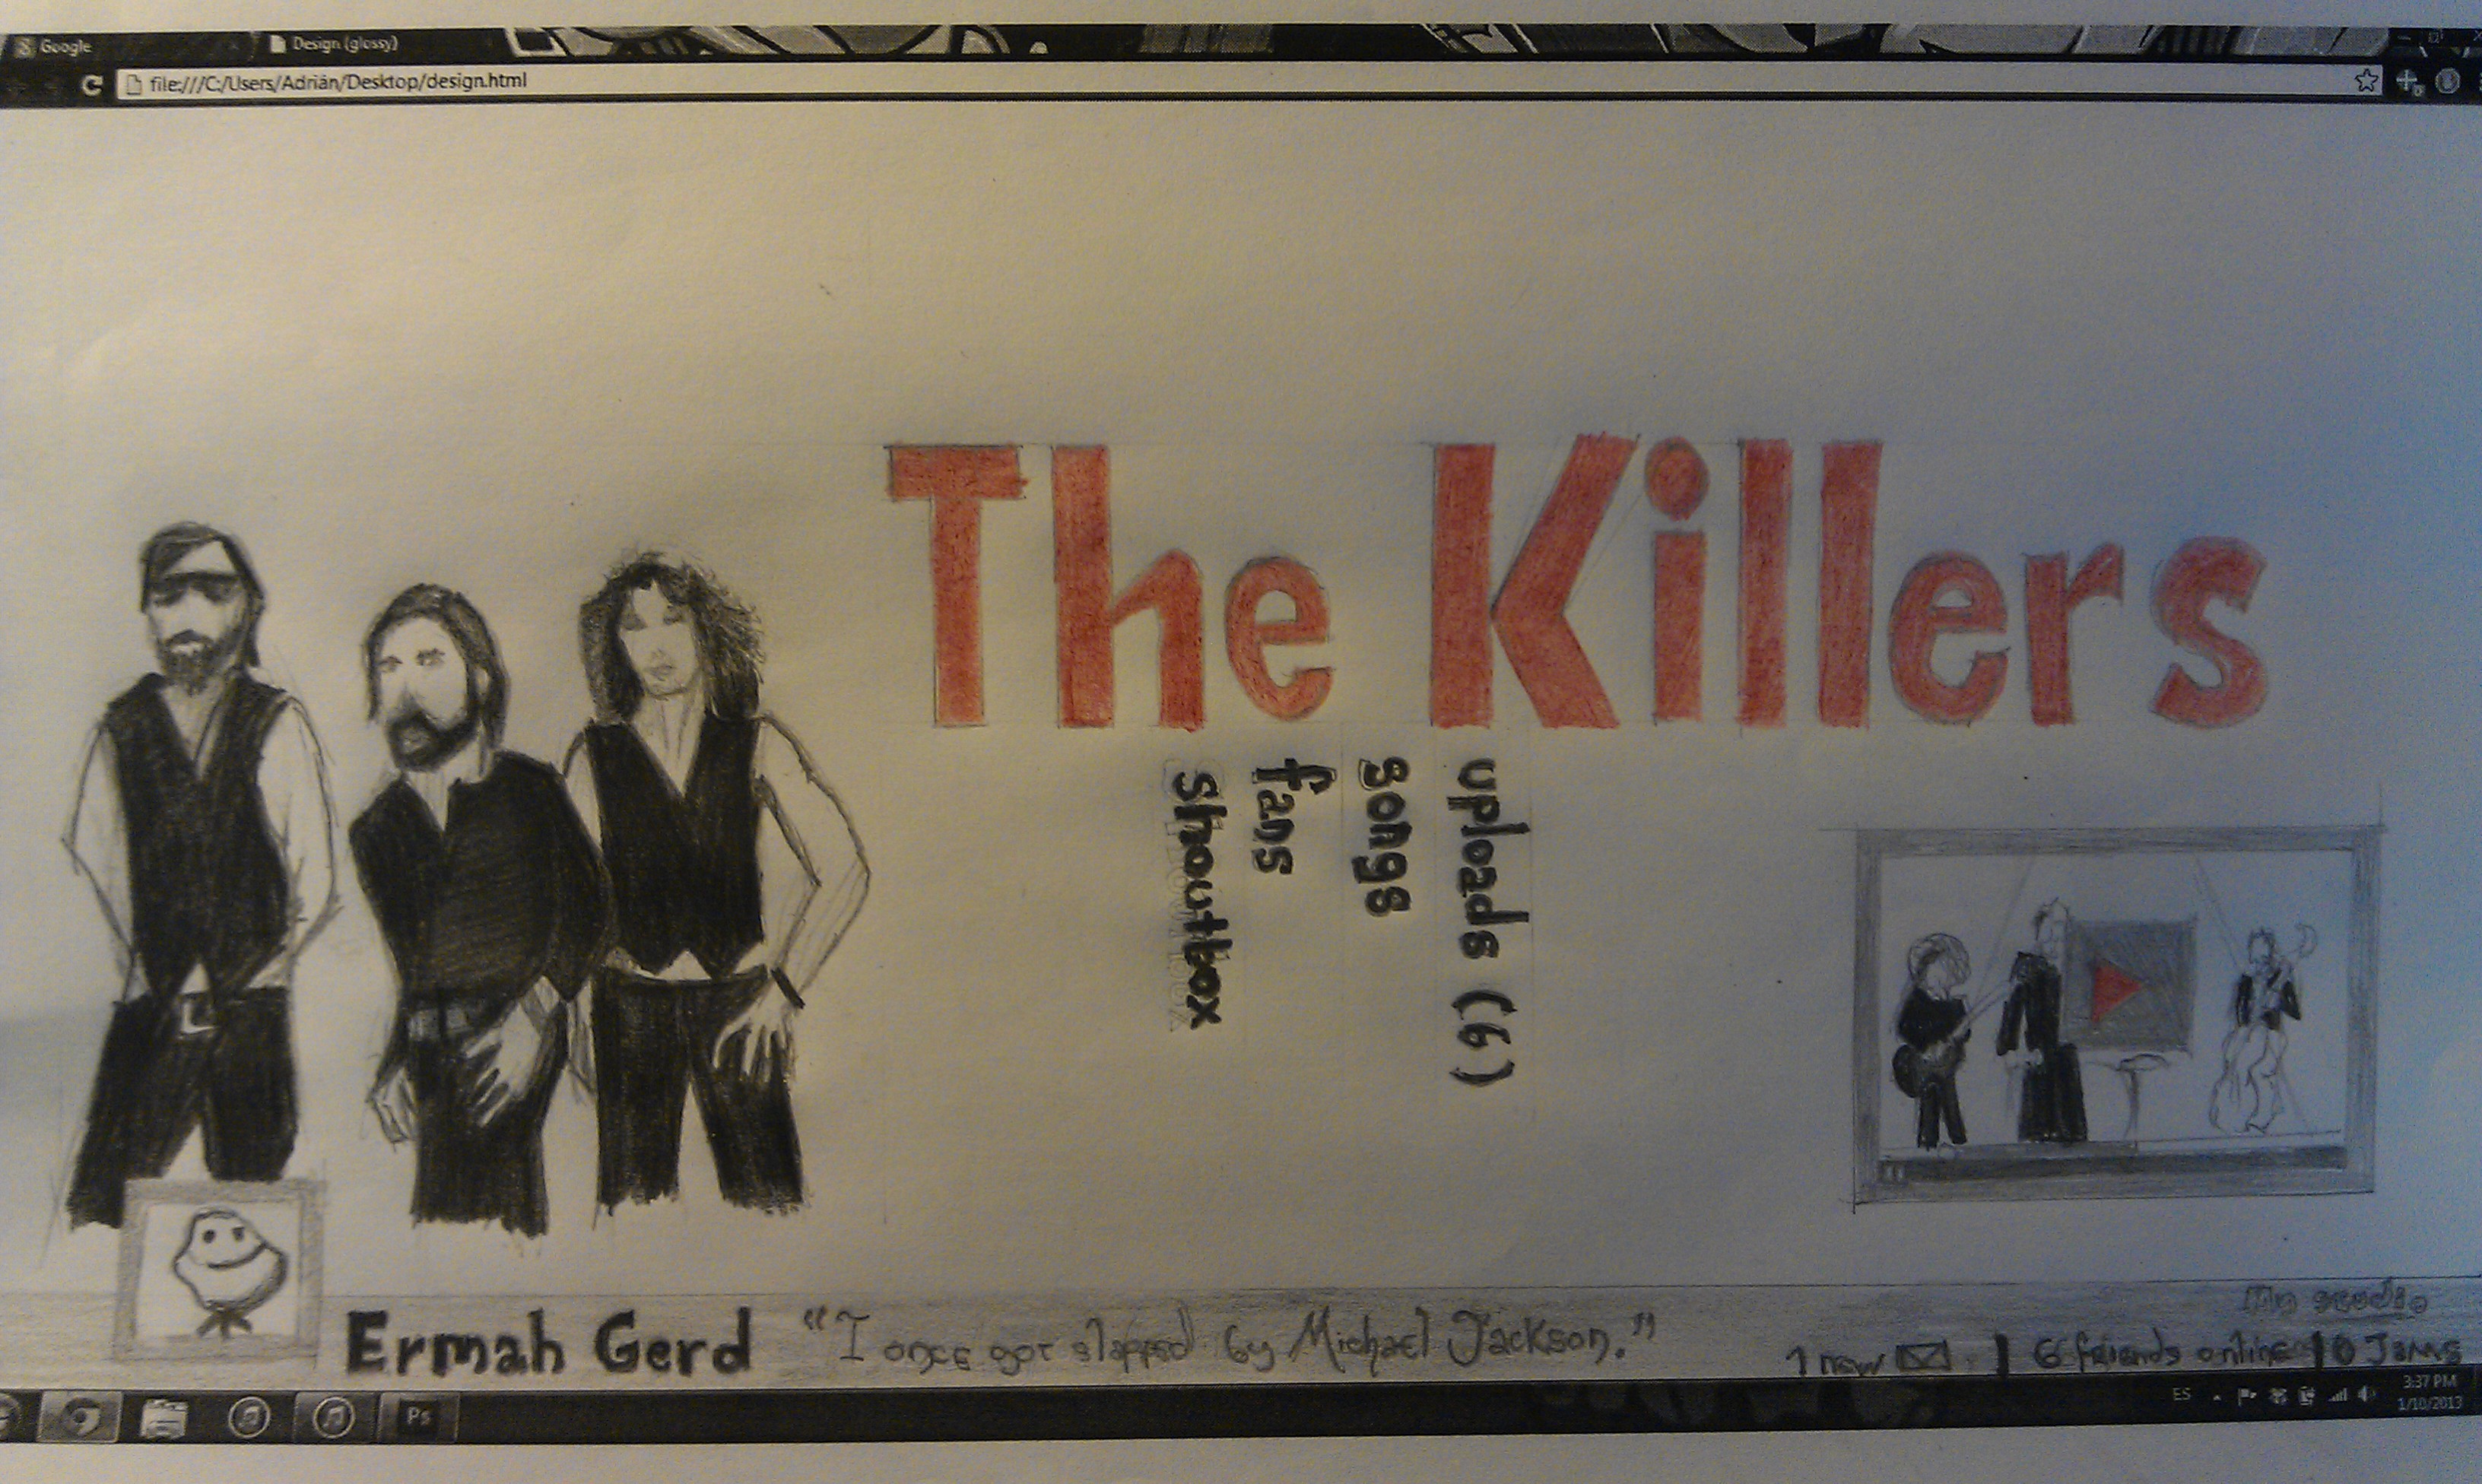 Google
Design (glossy)
file:///C:/Users/Adrián/Desktop/design.html
The Killers
shoutbox
fans
songs
uploads (6)
My studio
Ermah Gerd "I once got slapped by Michael Jackson."
1 new | 6 friends online | 0 Jams
Ps
ES
3:37 PM
1/10/2013